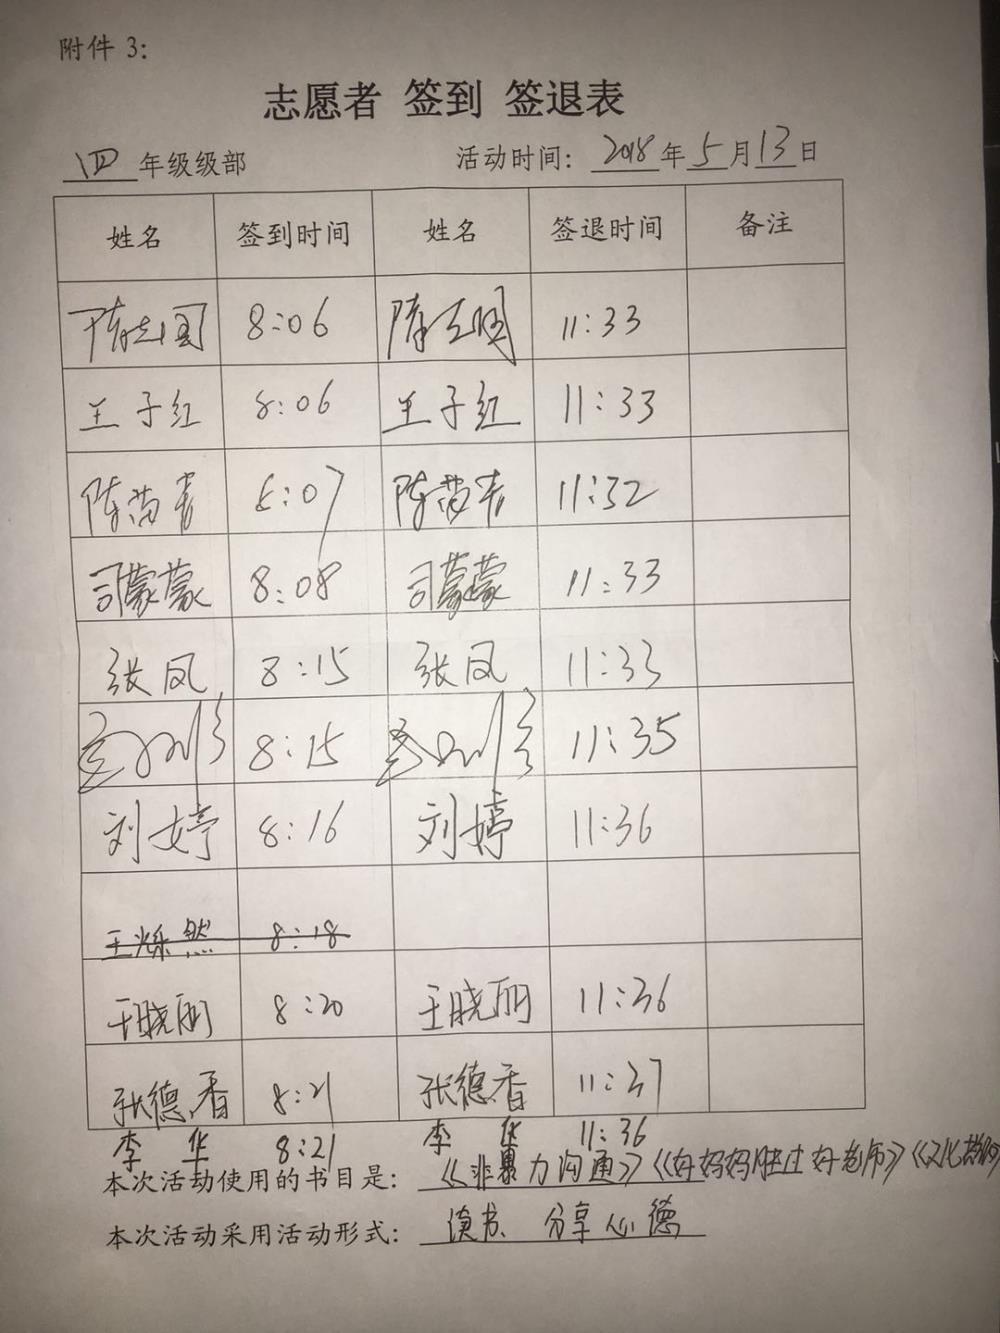 附件 3:
志愿者 签到 签退表
四 年级级部 活动时间: 2018 年 5 月 13 日
姓名 签到时间 姓名 签退时间 备注
隋志国 8:06 隋志国 11:33
王子红 8:06 王子红 11:33
陈茜青 8:07 陈茜青 11:32
司蒙蒙 8:08 司蒙蒙 11:33
张凤 8:15 张凤 11:33
8:15 11:35
刘婷 8:16 刘婷 11:36
王烁然 8:18
王晓丽 8:20 王晓丽 11:36
张德香 8:21 张德香 11:37
李华 8:21 李华 11:36
本次活动使用的书目是: 《非暴力沟通》《好妈妈胜过好老师》《
本次活动采用活动形式: 读书、分享心德